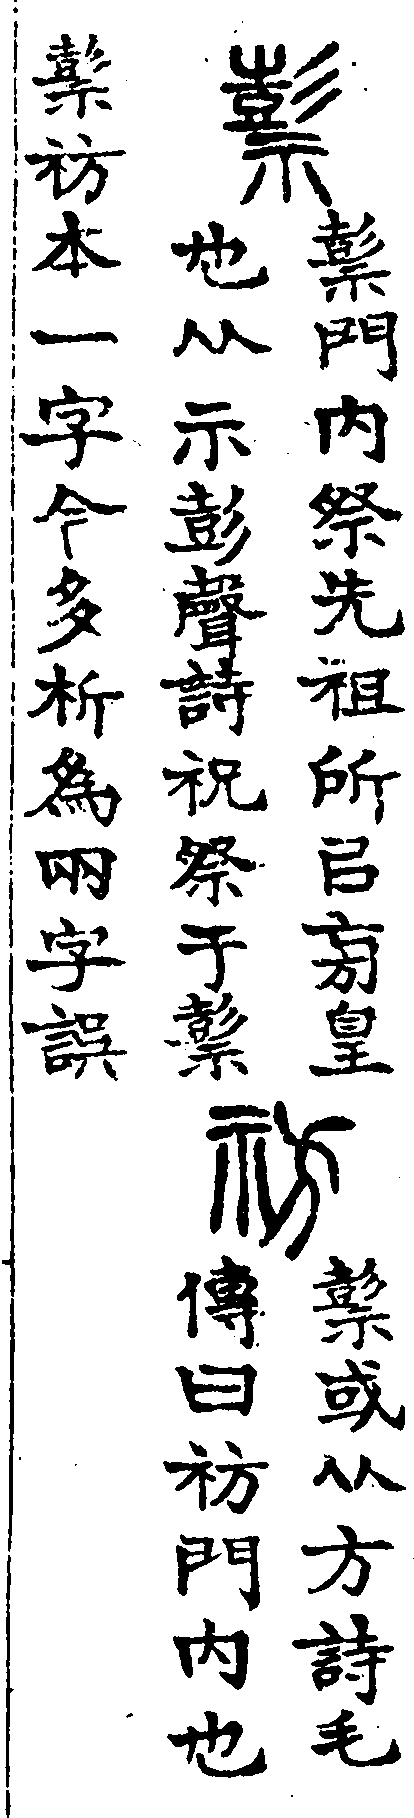 𥛱
𥛱門内祭先祖所㠯旁皇
也从示彭聲詩祝祭于𥛱
祊
𥛱或从方詩毛
傳曰祊門内也
𥛱祊本一字今多析為兩字誤